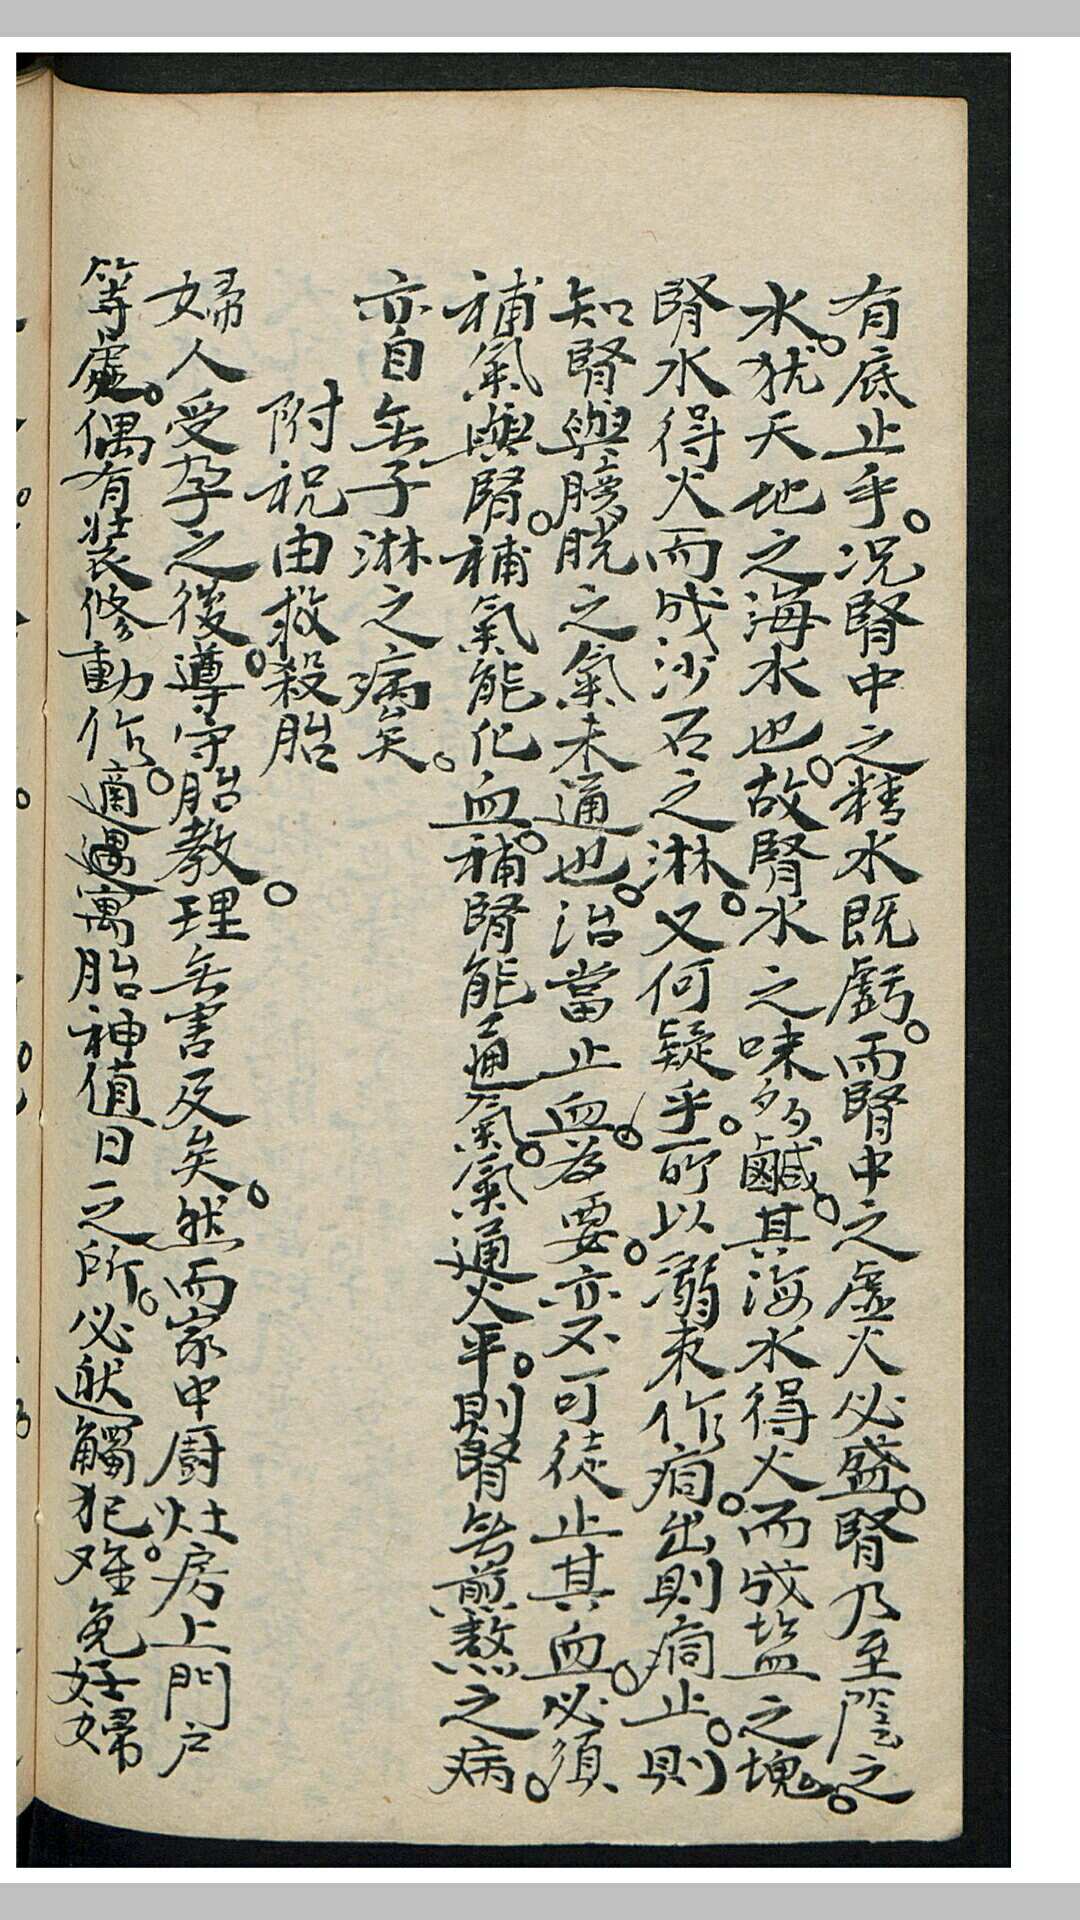 有底止乎。况腎中之精水既虧。而腎中之虚火必盛。腎乃至陰之
水。犹天地之海水也。故腎水之味多鹹。其海水得火而成盐之塊。
腎水得火而成沙石之淋。又何疑乎。所以溺来作痛。出則痛止。則
知腎與膀胱之氣未通也。治當止血為要。亦不可徒止其血。必須
補氣與腎。補氣能化血。補腎能通氣。氣通火平。則腎無煎熬之病。
亦自無子淋之病矣。
附祝由救殺胎。
婦人受孕之後。遵守胎教理無害及矣。然而家中厨灶房上門户
等處。偶有装修動作。適遇寓胎神值日之所。必然觸犯。难免妊婦